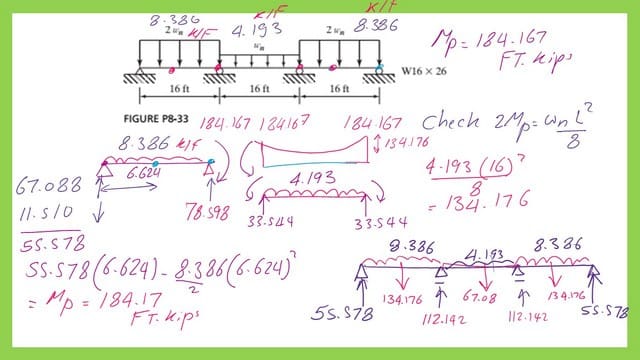 K/F
K/F
8.386
4.193
8.386
2 wn
K/F
wn
2 wn
W16 × 26
16 ft
16 ft
16 ft
FIGURE P8-33
Mp = 184.167
FT. Kips
184.167
184167
184.167
Check 2Mp = wn L²
8
8.386 K/F
6.624
134.176
4.193 (16)²
8
= 134.176
67.088
11.510
55.578
78.598
4.193
33.544
33.544
55.578(6.624) - 8.386(6.624)²
2
= Mp = 184.17
FT. Kips
8.386
4.193
8.386
134.176
67.08
134.176
55.578
112.142
112.142
55.578